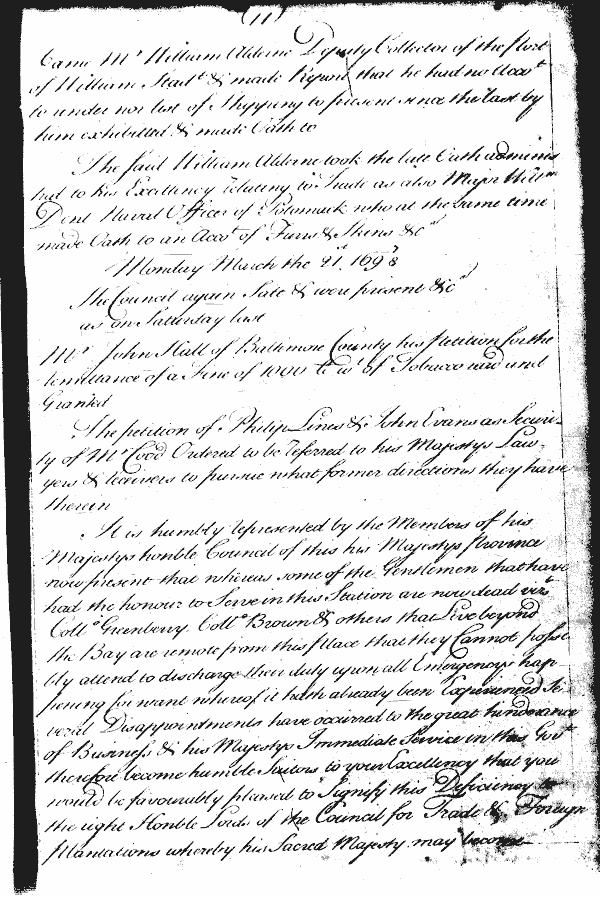 (11)
Came Mr William Alderne Deputy Collector of the Port
of William Stadt & made Report that he had no Accot
to render nor list of Shipping to present since the last by
him exhibitted & made Oath to
The said William Alderne took the late Oath adminis
tred to his Excellency relating to Trade as also Major Willm
Dent Naval Officer of Potomack who at the same time
made Oath to an Accot of Furrs & Skins &ca
Monday March the 21st 1698
The Council again Sate & were present &ca
as on Satterday last
Mr John Hall of Baltimore County his Petition for the
remittance of a Fine of 1000 lb wt of Tobacco read and
Granted
The petition of Philip Lines & John Evans as Securi-
ty of Mr Cood Ordered to be referred to his Majestys Law-
yers & receivers to pursue what former directions they have
therein
It is humbly represented by the Members of his
Majestys honble Council of this his Majestys Province
now present that whereas some of the Gentlemen that have
had the honour to Serve in this Station are now dead vizt
Collo Greenberry Collo Brown & others that Live beyond
the Bay are remote from this place that they Cannot possi
bly attend to discharge their duty upon all Emergencys hap-
pening for want whereof it hath already been Experienced Se-
veral Disappointments have occurred to the great hinderance
of Business & his Majestys Immediate Service in this Govt
therefore become humble Suitors to your Excellency that you
would be favourably pleased to Signify this Deficiency to
the right Honble Lords of the Council for Trade & Foreign
Plantations whereby his Sacred Majesty may become